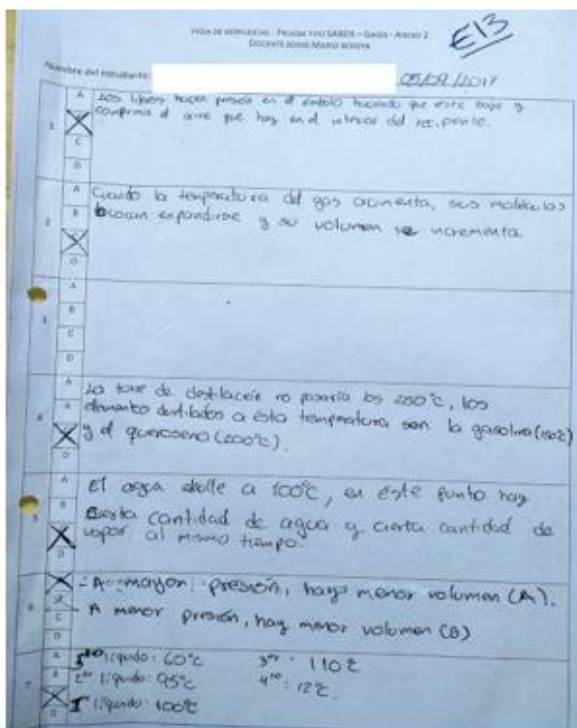 HOJA DE RESPUESTAS - PRUEBA TIPO SABER - GASES - ANEXO 2
DOCENTE MARIO BEDOYA
E13
Nombre del estudiante:
05/09/2017
1
A
C
D
Los libros hacen presión en el émbolo haciendo que este baje y
comprima el aire que hay en el interior del recipiente.
2
A
B
D
Cuando la temperatura del gas aumenta, sus moléculas
buscan expandirse y su volumen se incrementa.
3
A
B
C
D
4
A
B
D
La torre de destilación no pasaría los 200°C, los
elementos destilados a esta temperatura son la gasolina
y el queroseno (200°C).
5
A
B
D
El agua ebulle a 100°C, en este punto hay
cierta cantidad de agua y cierta cantidad de
vapor al mismo tiempo.
6
C
D
- A mayor presión, haya menor volumen (A).
- A menor presión, hay menor volumen (B)
7
A
B
D
líquido: 60°C 3er: 110°C
2do líquido: 95°C 4to: 12°C.
1 líquido: 100°C